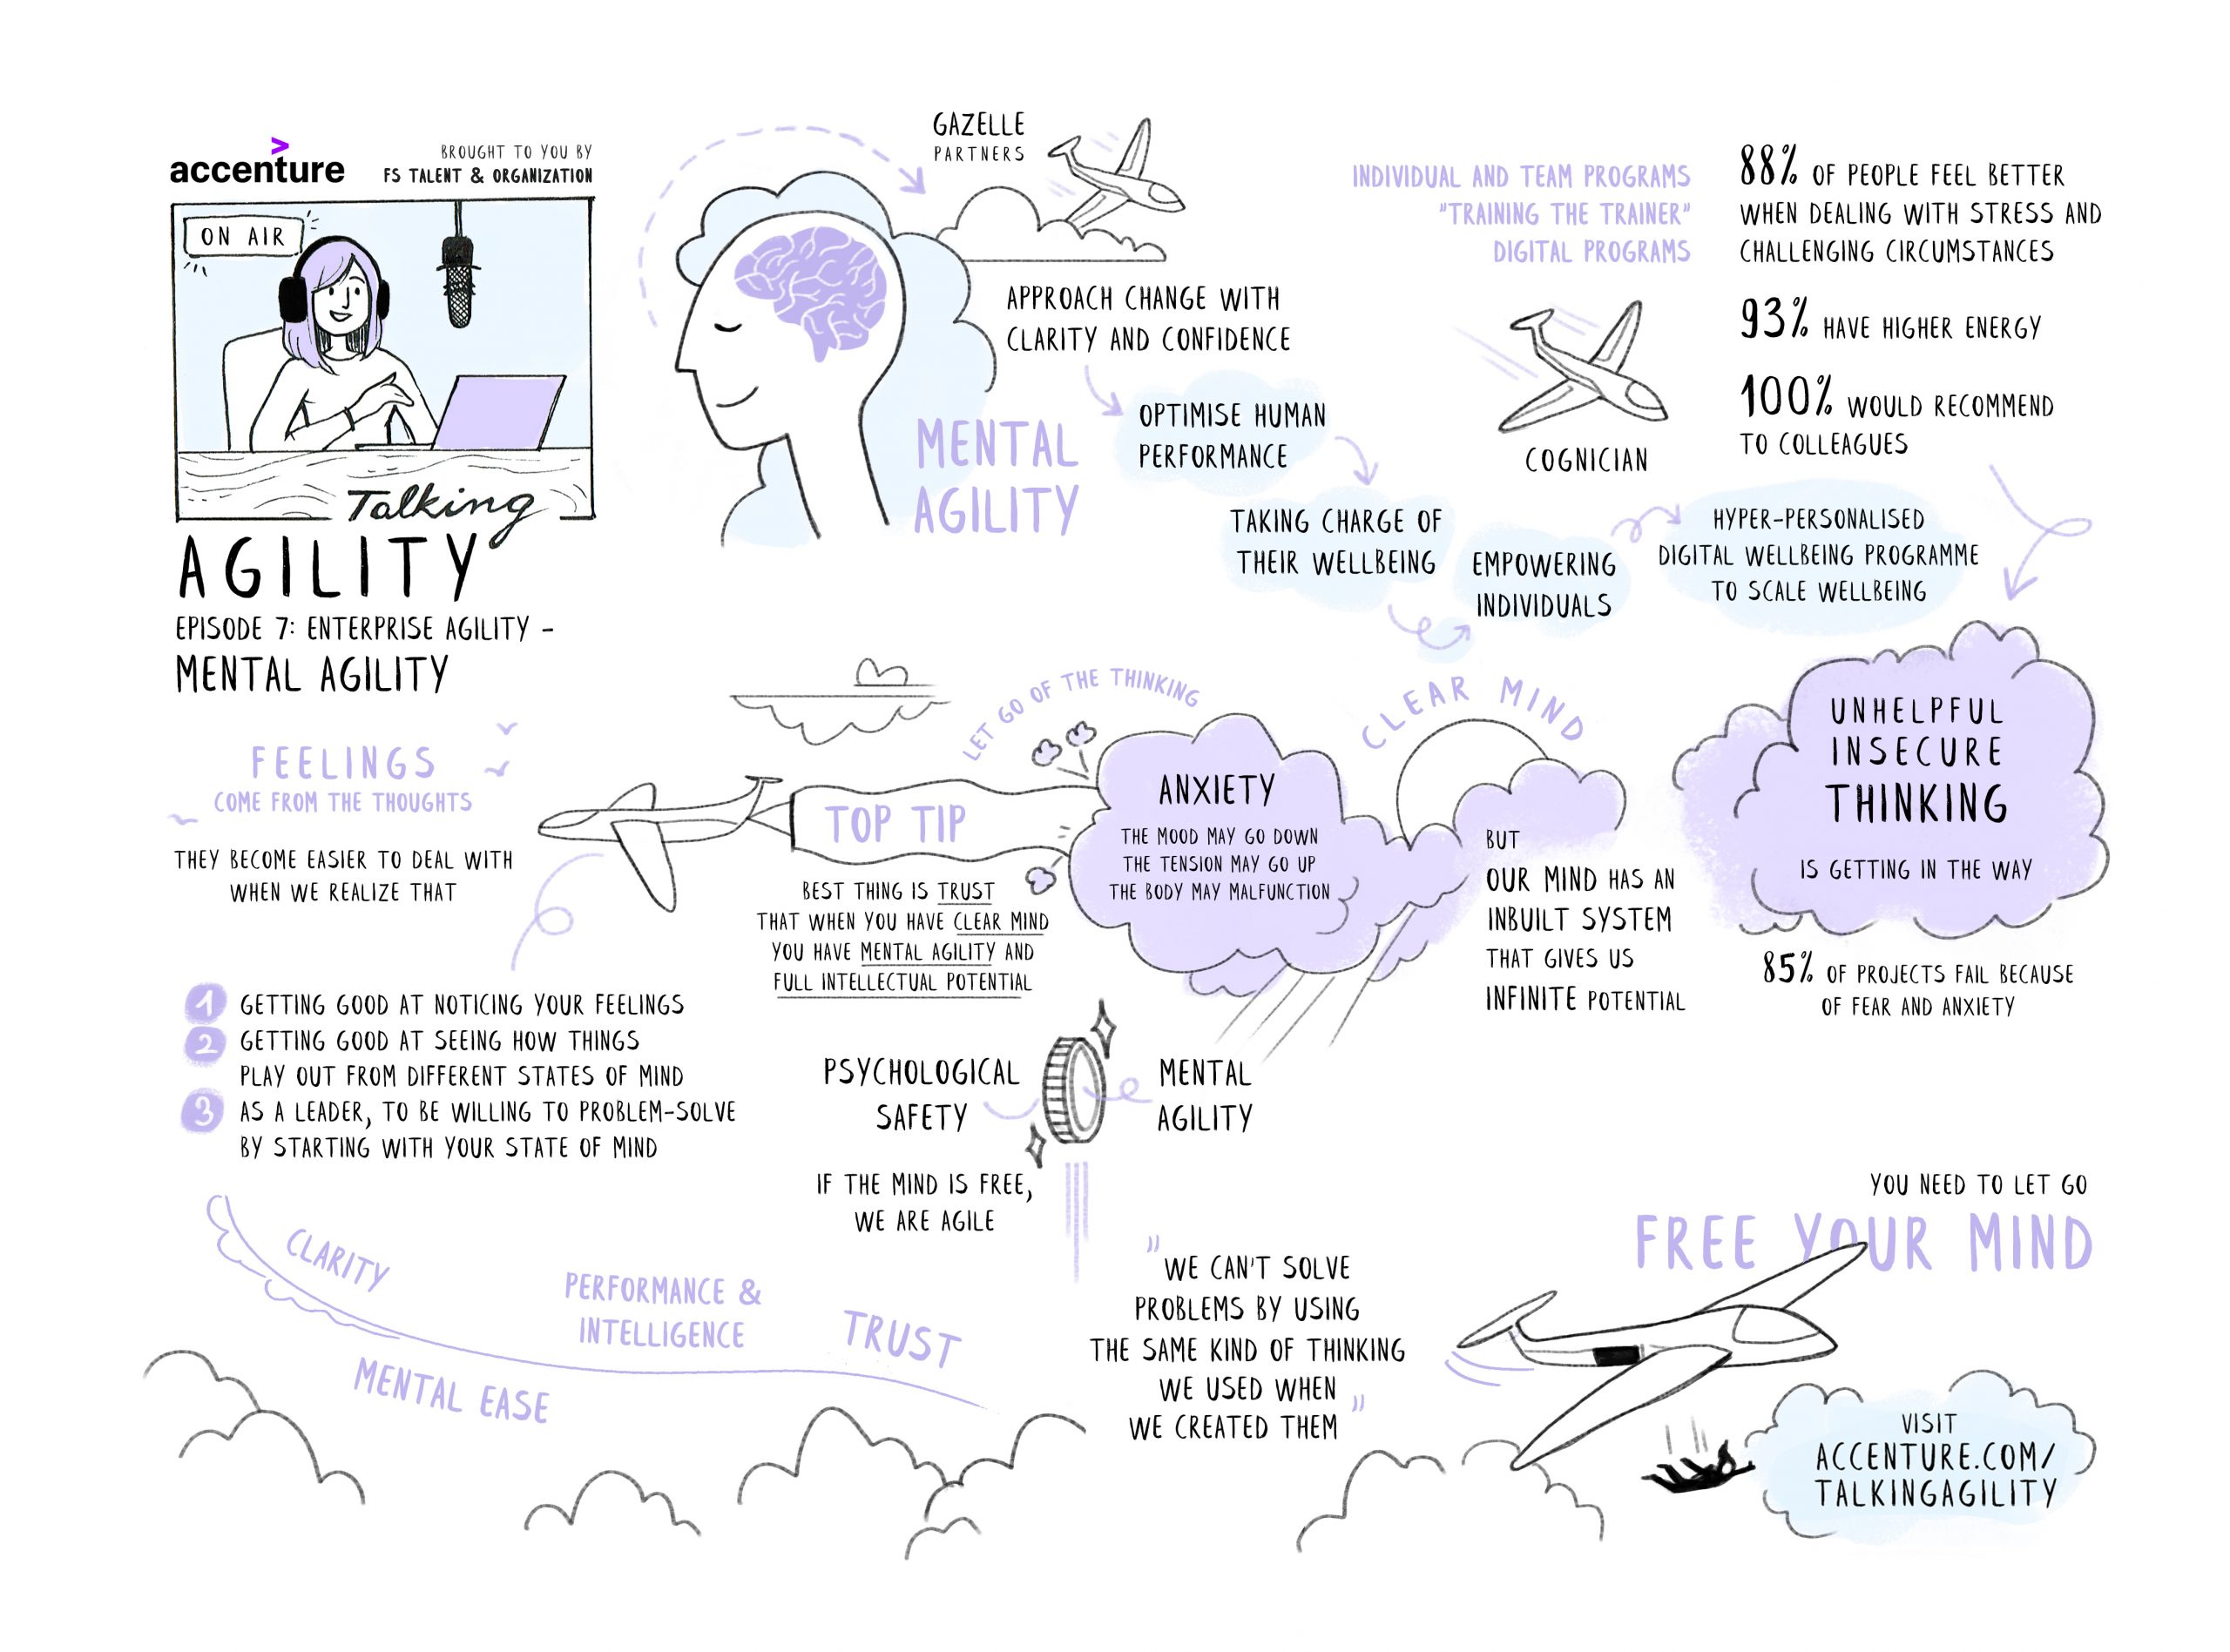 accenture
BROUGHT TO YOU BY
FS TALENT & ORGANIZATION
ON AIR
Talking
AGILITY
EPISODE 7: ENTERPRISE AGILITY -
MENTAL AGILITY
GAZELLE
PARTNERS
APPROACH CHANGE WITH
CLARITY AND CONFIDENCE
MENTAL
AGILITY
OPTIMISE HUMAN
PERFORMANCE
TAKING CHARGE OF
THEIR WELLBEING
EMPOWERING
INDIVIDUALS
HYPER-PERSONALISED
DIGITAL WELLBEING PROGRAMME
TO SCALE WELLBEING
INDIVIDUAL AND TEAM PROGRAMS
"TRAINING THE TRAINER"
DIGITAL PROGRAMS
COGNICIAN
88% OF PEOPLE FEEL BETTER
WHEN DEALING WITH STRESS AND
CHALLENGING CIRCUMSTANCES
93% HAVE HIGHER ENERGY
100% WOULD RECOMMEND
TO COLLEAGUES
UNHELPFUL
INSECURE
THINKING
IS GETTING IN THE WAY
85% OF PROJECTS FAIL BECAUSE
OF FEAR AND ANXIETY
CLEAR MIND
BUT
OUR MIND HAS AN
INBUILT SYSTEM
THAT GIVES US
INFINITE POTENTIAL
LET GO OF THE THINKING
ANXIETY
THE MOOD MAY GO DOWN
THE TENSION MAY GO UP
THE BODY MAY MALFUNCTION
TOP TIP
BEST THING IS TRUST
THAT WHEN YOU HAVE CLEAR MIND
YOU HAVE MENTAL AGILITY AND
FULL INTELLECTUAL POTENTIAL
FEELINGS
COME FROM THE THOUGHTS
THEY BECOME EASIER TO DEAL WITH
WHEN WE REALIZE THAT
1 GETTING GOOD AT NOTICING YOUR FEELINGS
2 GETTING GOOD AT SEEING HOW THINGS
PLAY OUT FROM DIFFERENT STATES OF MIND
3 AS A LEADER, TO BE WILLING TO PROBLEM-SOLVE
BY STARTING WITH YOUR STATE OF MIND
PSYCHOLOGICAL
SAFETY
MENTAL
AGILITY
IF THE MIND IS FREE,
WE ARE AGILE
CLARITY
MENTAL EASE
PERFORMANCE &
INTELLIGENCE
TRUST
"WE CAN'T SOLVE
PROBLEMS BY USING
THE SAME KIND OF THINKING
WE USED WHEN
WE CREATED THEM"
YOU NEED TO LET GO
FREE YOUR MIND
VISIT
ACCENTURE.COM/
TALKINGAGILITY